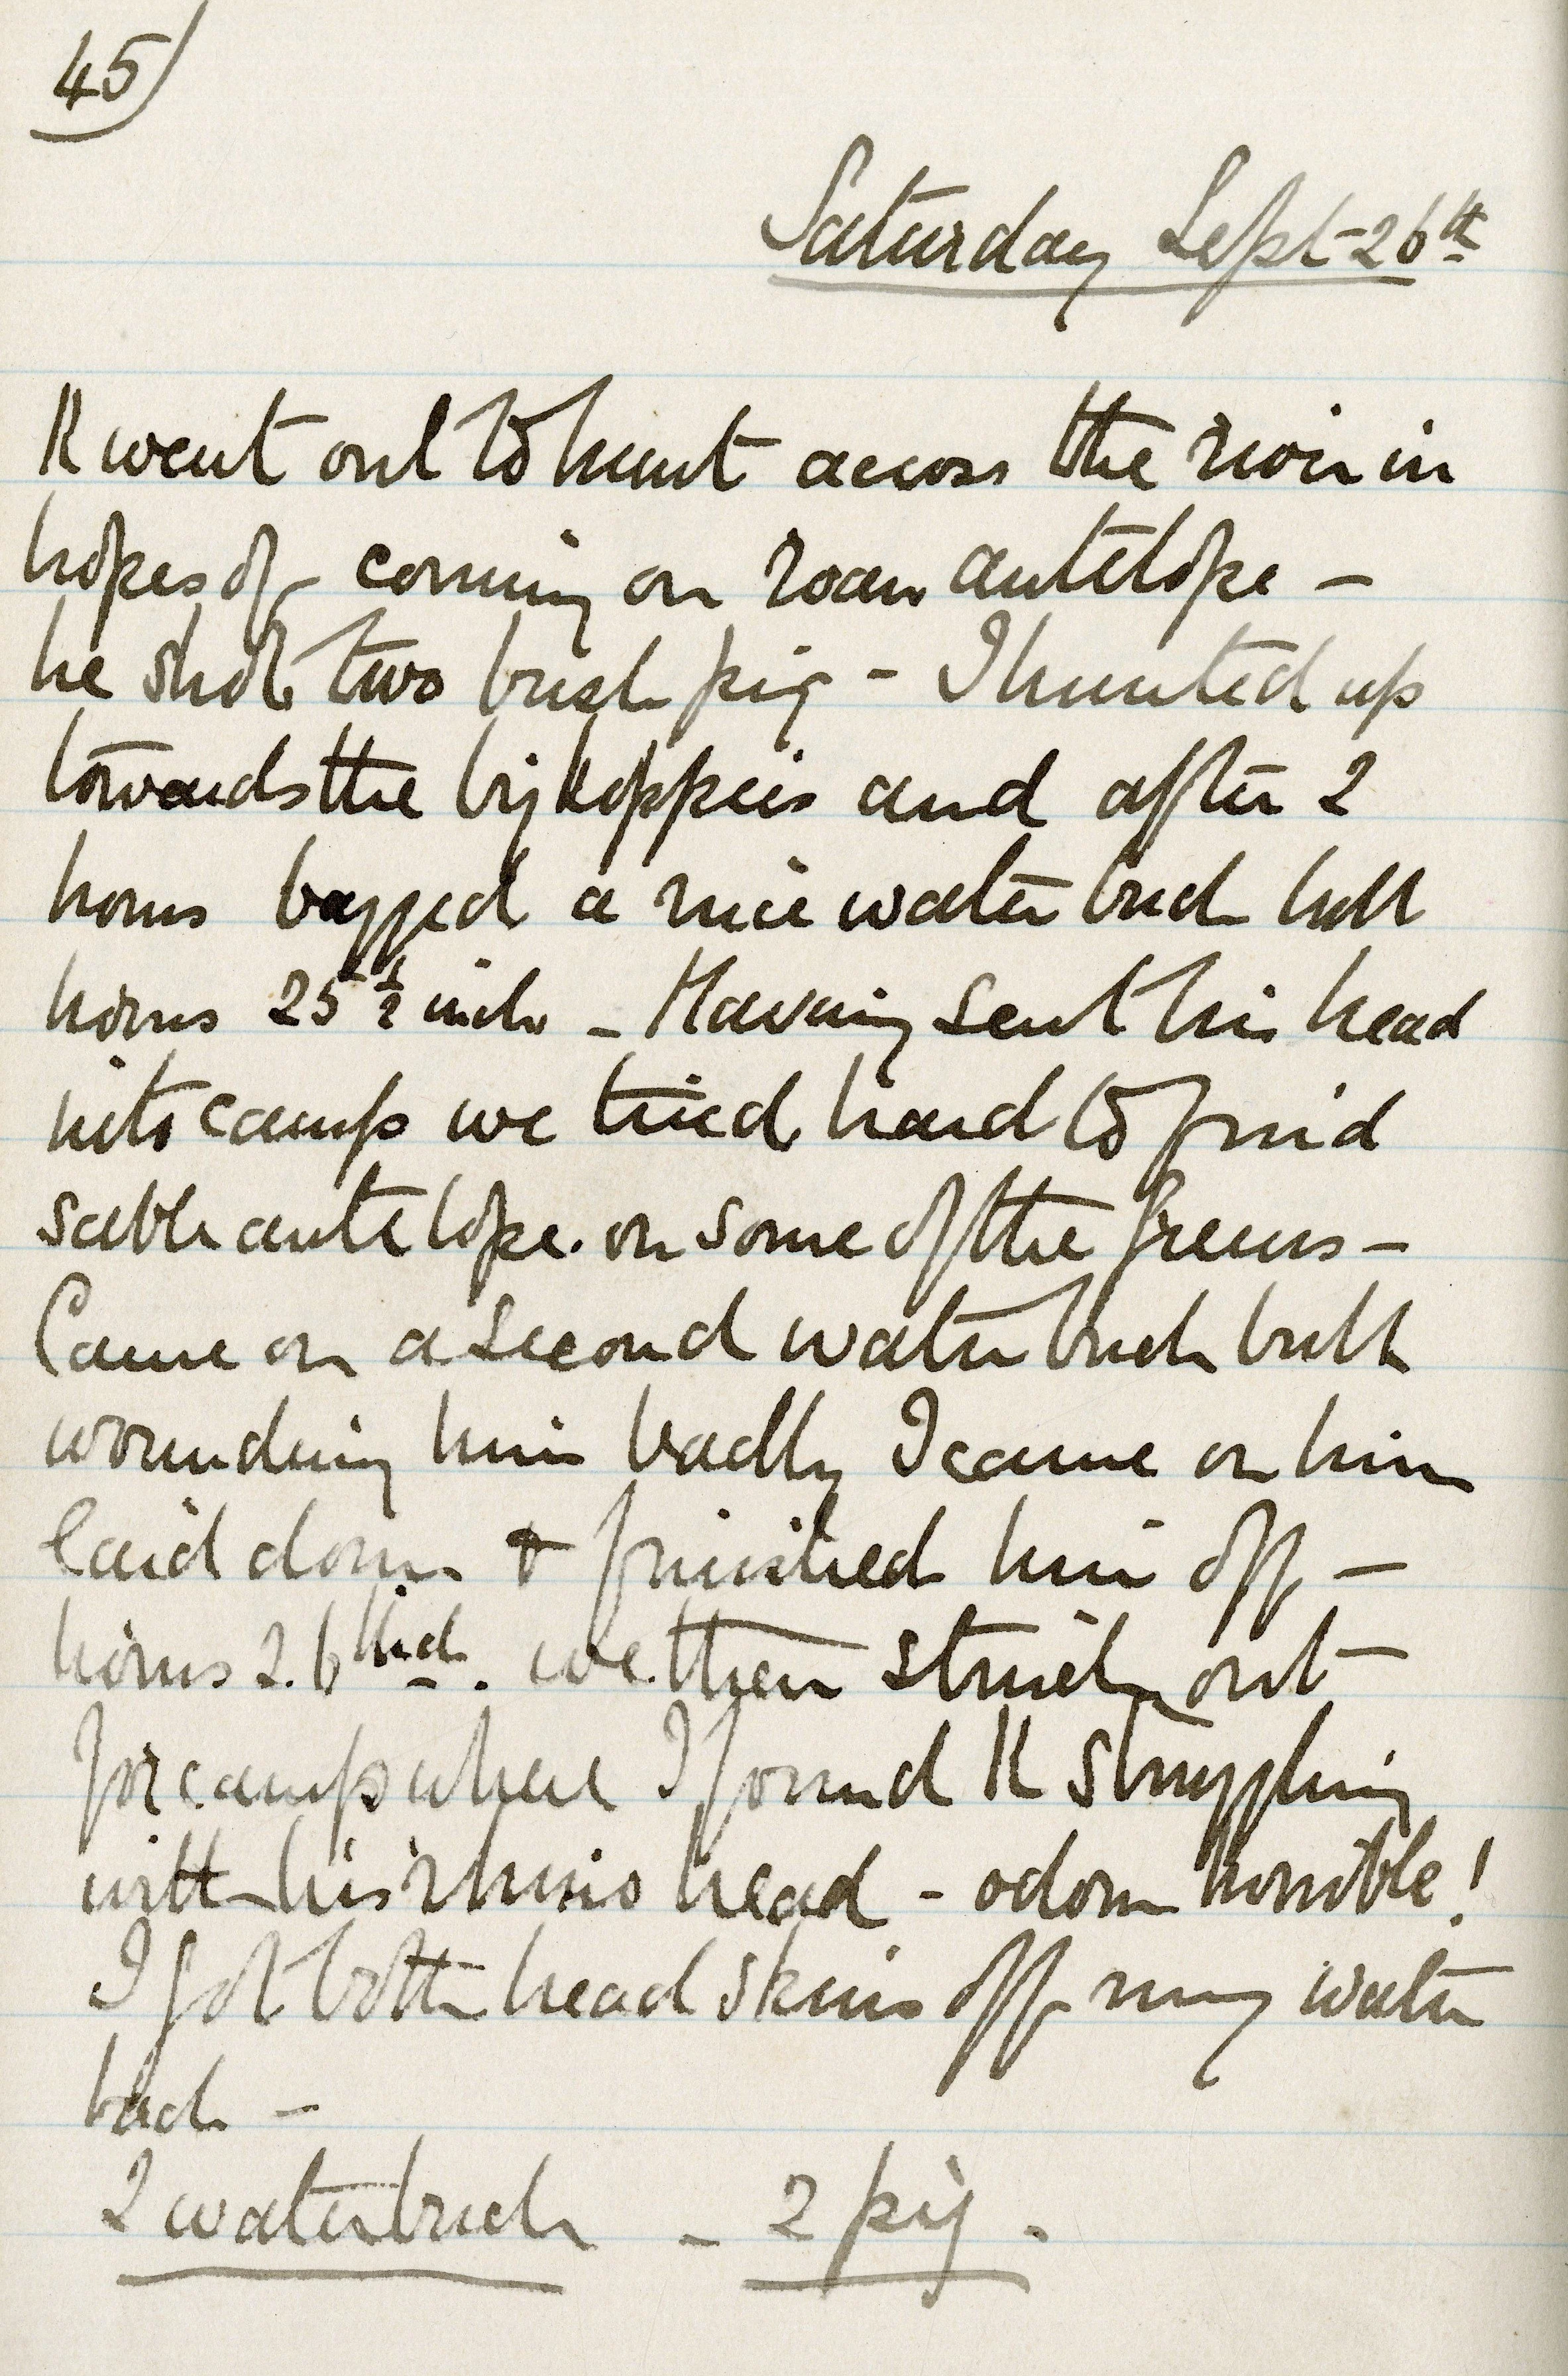 45
Saturday Sept-26th
K went out to hunt across the river in
hopes of coming on roan antelope -
he shot two bush pig - I hunted up
towards the big koppies and after 2
hours bagged a nice water buck bull
horns 25½ inch - Having sent his head
into camp we tried hard to find
sable antelope on some of the
Came on a second water buck bull
wounding him badly I came on him
laid down & finished him off -
horns 26 inch. We then struck out
for camp where I found K struggling
with his rhino head - odour horrible!
I got both head skins off my water
buck -
2 waterbuck - 2 pig.